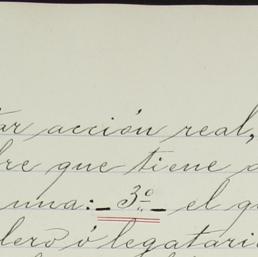 tar acción real,
bre que tiene a
una: 3º el qu
dero ó legatari